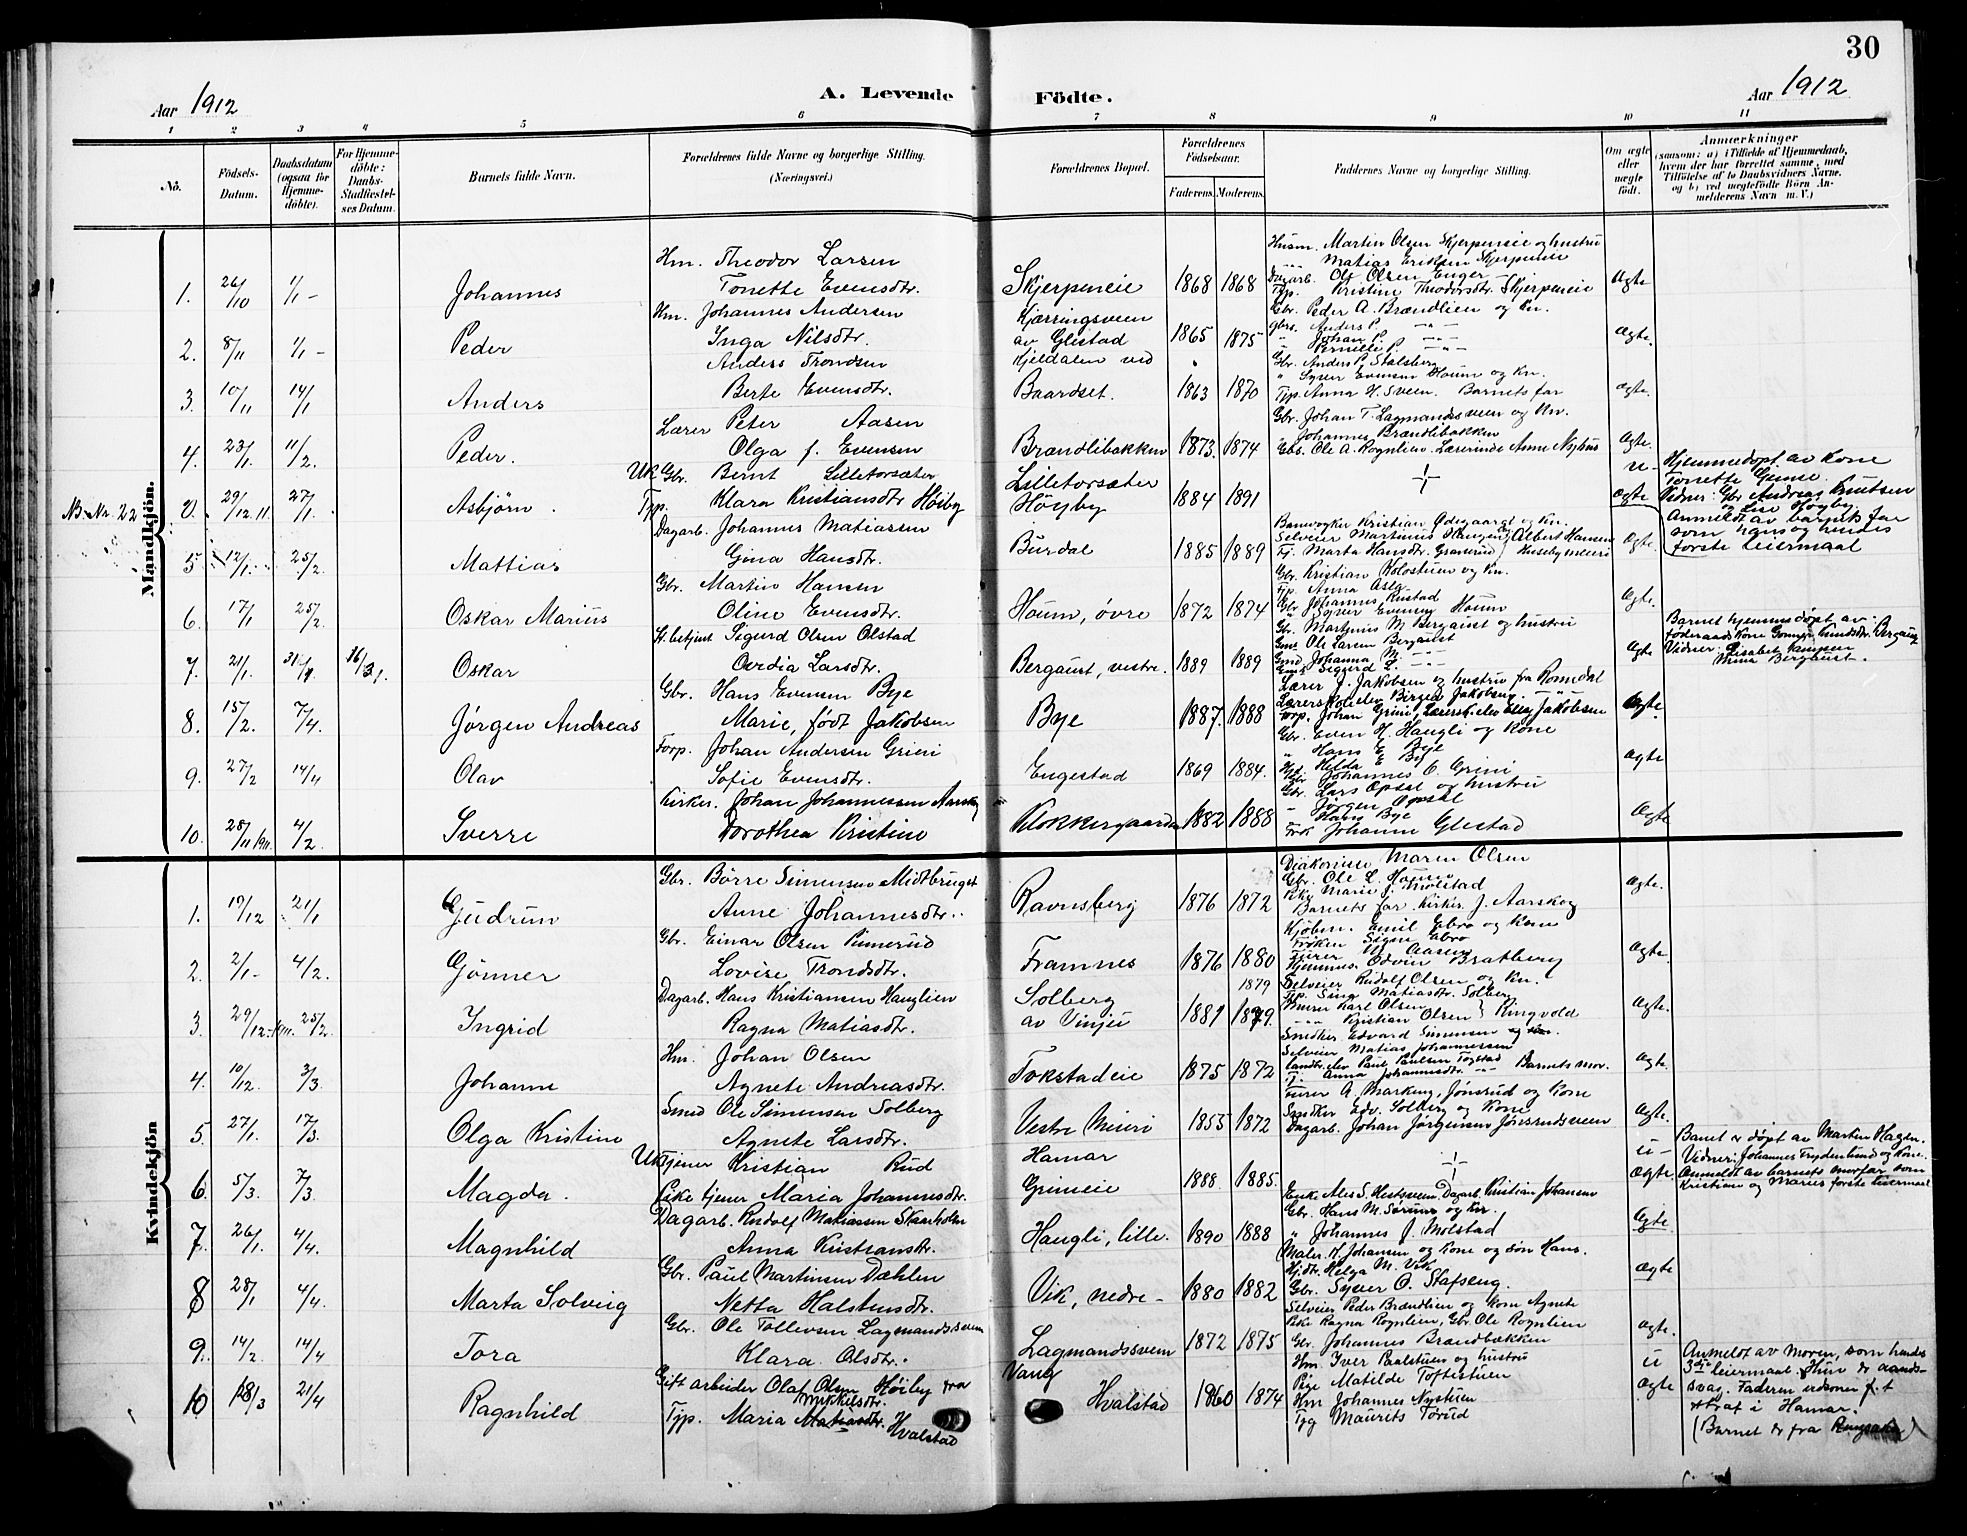 30
Aar 1912
A. Levende Födte.
Aar 1912
1 2 3 4 5 6 7 8 9 10 11
Nô.
Födsels-Datum.
Daabsdatum (ogsaa for Hjemme-döbte).
For Hjemme-döbte: Daabs-Stadfæstel-ses Datum.
Barnets fulde Navn.
Forældrenes fulde Navne og borgerlige Stilling. (Næringsvei.)
Forældrenes Bopæl.
Forældrenes Födselsaar.
Faderens. Moderens.
Faddernes Navne og borgerlige Stilling.
Om ægte eller uægte födt.
Anmærkninger
(saasom: a) i Tilfælde af Hjemmedaab, hvem der har forrettet samme, med Tilföielse af to Daabsvidners Navne, og b) ved uægtefödte Börn An-melderens Navn m. V.)
Mandkjön.
1. 26/10 1/1 - Johannes
Hm. Theodor Larsen
Tonette Evensdtr.
Skjerpeneie 1868 1868
Husm. Martin Olsen Skjerpeneie og hustru
Matias Eriksen Skjerpeneie
Dagarb. Ole Olsen Enger
Tjp. Kristine Theodorsdtr. Skjerpeneie
Ægte
2. 8/11 1/1 - Peder
Hm. Johannes Andersen
Inga Nilsdtr.
Kjærringsveen av Glestad 1865 1875
Gbr. Peder A. Brændlien og kn.
Gbrs. Anders P. -"-
" Johan P. -"-
" Pernille P. -"-
Ægte.
3. 10/11 14/1 Anders
Anders Trondsen
Berte Evensdtr.
Kjeldalen ved Baardset. 1863 1870
Gbr. Anders P. Stalsberg
" Syver Evensen Houm og kn.
Tjp. Anna H. Sveen. Barnets far
Ægte.
4. 23/1. 11/2. Peder.
Lærer Peter Aasen
Olga f. Evensen
Brændlibakken 1873. 1874
Gbr. Johan T. Lagmandssveen og kn.
" Johannes Brændlibakken
Gbs. Ole A. Rognlien. Lærerinde Anne Nyhus
Ægte.
NB. Nr. 22
29/12.11. 27/1. Asbjörn.
UK Gbr. Bernt Lilletorsæter
Tjp. Klara Kristiansdtr Höiby
Lilletorsæter
Höyby 1884 1891
u-Ægte
Hjemmedöpt av kone
Tonette Geme.
Vidner: Gbr Andreas Knutsen
og Lise Hogby.
Anmeldt av barnets far
som hans og hendes
förste leiermaal
5. 12/1. 25/2. Mattias
Dagarb. Johannes Matiassen
Gina Hansdtr.
Burdal 1885 1889
Banevogter Kristian Ödegaard og kn.
Tj. Marta Hansdtr. Granerud
Albert Hansen Husebymeiri
Ægte.
6. 17/1 25/2. Oskar Marius
Gbr. Martin Hansen
Oline Evensdtr.
Houm, övre 1872 1874
Gbr. Kristian Kolostuen og kn.
Tjp. Anna Asla
Gbr. Johannes Rustad
" Syver Evensen Houm
Ægte.
7. 21/1. 31/1. 16/3. Oskar
St. betjent Sigurd Olsen Olstad
Ovedia Larsdtr.
Bergaust, vestre. 1889 1889
Gbr. Martinus M Bergaust og hustru
Gmd. Ole Larsen Bergaust
Gmd Johanna M. -"-
Gmd Sigurd L. -"-
Ægte
Barnet hjemmedöpt av
föderaadskone Gonner Knudsdtr. Bergaust
Vidner: Lisabet Hansen
Mina Berghust.
8. 15/2. 7/4. Jörgen Andreas
Gbr. Hans Evensen Bye
Marie, födt Jakobsen
Bye 1887. 1888
Lærer J. Jakobsen og hustru fra Romedal
Lærerskoleelev Birger Jakobsen. -"-
Forp. Johan Grini, Lærersk. elev Elley Jakobsen
Ægte.
9. 27/2 14/4 Olav
Forp. Johan Andersen Grini
Sofie Evensdtr.
Engestad 1869 1884.
Gbr. Even H. Haugli og kone
" Hans E Bye
Hilda E Bye
Gbr Johannes O. Grini
Ægte
10. 28/11 1911. 4/2. Sverre
Kirkes. Johan Johannessen Aarskog
Dorothea Kristine
Klokkergaarden 1882 1888
Gbr. Lars Opsal og hustru
" Jörgen Opsal
" Hans Bye
Frk Johanne Glestad
Ægte
Kvindekjön
1. 17/12 21/1 Gudrun
Gbr. Börre Simensen Midtbruget
Anne Johannesdtr.
Ravnsberg 1876 1872
Diakonisse Maren Olsen
Gbr. Ole L. Houm
Pike Marie J. Molstad
Barnets far. Kirkes. J. Aarskog
Ægte.
2. 2/1- 4/2. Gönner
Gbr. Einar Olsen Pinnerud
Lovise Trondsdtr.
Framnes 1876 1880
Kjöbm. Emil Ebro og kone
Fröken Signe Ebro
Lærer Aasen
Hjemmes. Odvin Bratberg
Ægte.
3. 29/12.1911. 25/2. Ingrid
Dagarb. Hans Kristiansen Hauglien
Ragna Matiasdtr.
Solberg av Vinju 1881 1879 1879.
Selveier Rudolf Olsen og kn.
Tjp. Sina Matiasdtr. Solberg
Murer Karl Olsen
-"- Kristian Olsen } Ringvold
Ægte.
4. 10/12. 3/3. Johanne
Hm. Johan Olsen
Agnete Andreasdtr.
Tokstadeie 1875 1872
Snedker Edvard Simensen og kn.
Selveier Matias Johannessen
Landbr.elev Paul Paulsen Togstad
Tj. Anna Johannesdtr. -"- Barnets mor.
Ægte.
5. 27/1. 17/3. Olga Kristine
Smed Ole Simensen Solberg
Agnete Larsdtr.
Vestre Meiri 1853 1872
Murer A. Markeng, Jönsrud og kone
Snedker Edv. Solberg og kone
Dagarb. Johan Jörgensen Jönsrudsveen
Ægte.
6. 5/3. 7/3. Magda.
UK Tjener Kristian Rud
Pike tjener Maria Johannesdtr.
Hamar
Grimeie 1888. 1885.
u-Ægte.
Barnet er döpt av Martin Hagen.
Vidner: Johannes Frydenlund og kone.
Anmeldt av barnets morfar som
Kristian og Maries förste leiermaal
7. 26/1. 4/4. Magnhild
Dagarb. Rudolf Matiassen Skarholm
Anna Kristiansdtr.
Haugli, lille. 1890 1888
Enke Ales S. Hestsveen. Dagarb. Kristian Johansen
Gbr. Hans M. Sörum og kn.
" Johannes J. Molstad
Ægte
8 28/1 4/4. Marta Solveig
Gbr. Paul Martinsen Dæhlen
Netta Halstensdtr.
Vik, nedre - 1880 1882
Maler K. Johansen og kone og sön Hans.
Hjdtr. Helga M. Vik
Gbr. Syver O. Stafseng.
Ægte
9. 14/2. 14/4 Tora
Gbr. Ole Tollevsen Lagmandssveen
Klara Olsdtr.
Lagmandssveen 1872 1875
Selveier Peder Brændlien og kone Agnete
Pike Ragna Rognlien, Gbr. Ole Rognlien
Gbr. Johannes Brændbakken
Ægte.
10 18/3 21/4 Ragnhild
Gift arbeider Olaf Olsen Höiby fra
Tjp. Maria Mikkelsdtr. Hvalstad
Vang
Hvalstad 1860 1874
Hm Iver Paalstuen og hustru
Pige Matilde Toftestuen
Hm Johannes Nystuen
Tyg Maurits Törud
u Ægte
Anmeldt av Moren, som hendes
3die leiermaal. Hun er aands-
svag. Faderen utsoner f.t
straf i Hamar.
(Barnet er fra Ringsaker)